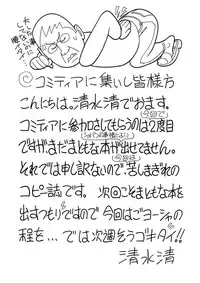 コミティアに集いし皆様方
こんにちは。清水清でおます。
今回で
コミティアに参加させてもらうのは2度目
ですがまだまともな本が出せてません。
今回は
それでは申し訳ないので、苦しまぎれの
コピー誌です。次回こそまともな本を
出すつもりですので今回はごヨーシャの
程を…では次週そうゴキタイ!!
清水清